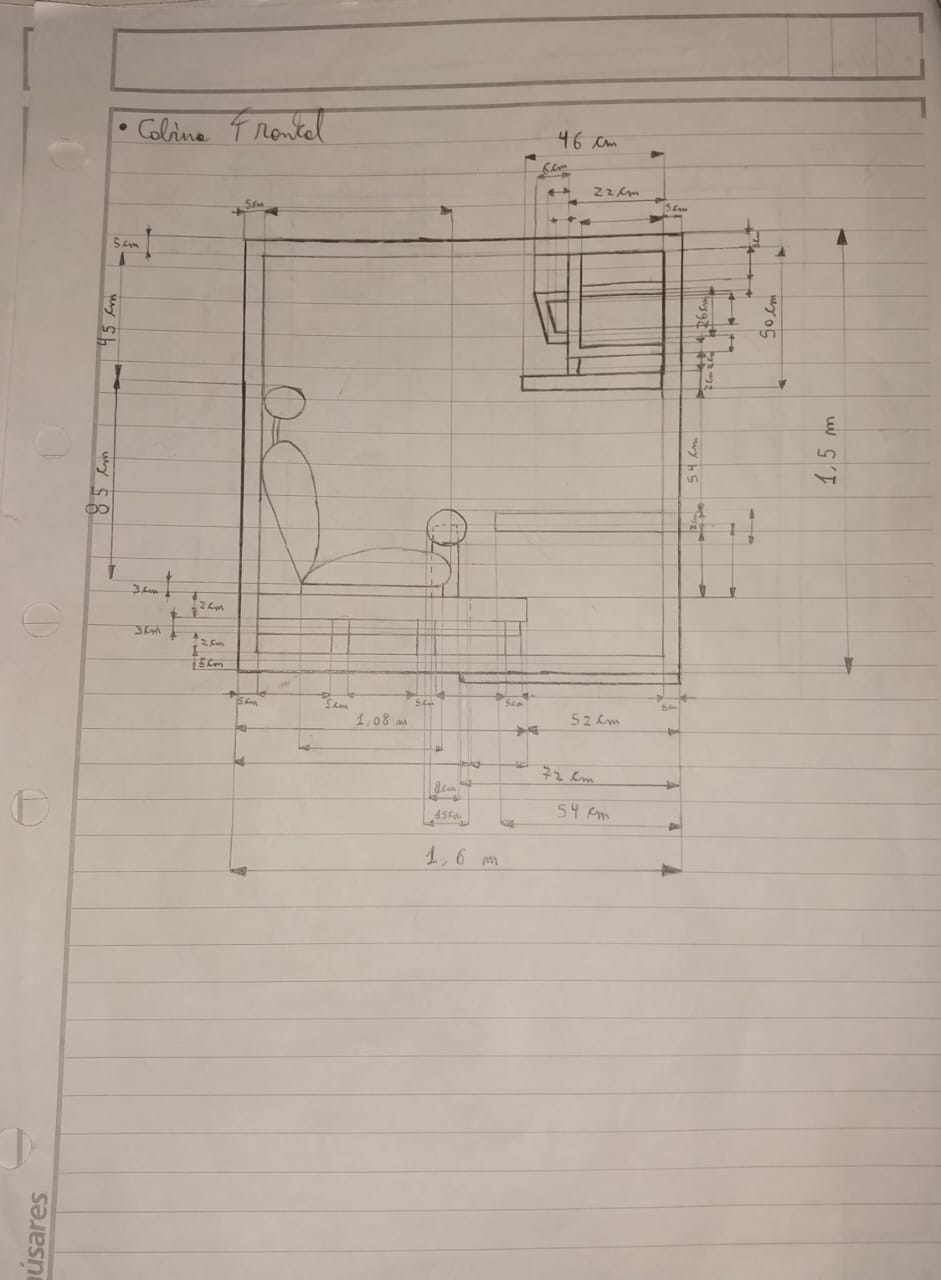 • Cabina Frontal
46 cm
6cm
22cm
5cm
5cm
5cm
45 cm
26cm
50cm
2cm
2cm
85 cm
54 cm
1,5 m
2cm
3cm
2cm
3cm
2cm
5cm
5cm
5cm
5cm
5cm
5cm
1,08 m
52 cm
72 cm
8cm
15cm
54 cm
1,6 m
núsares